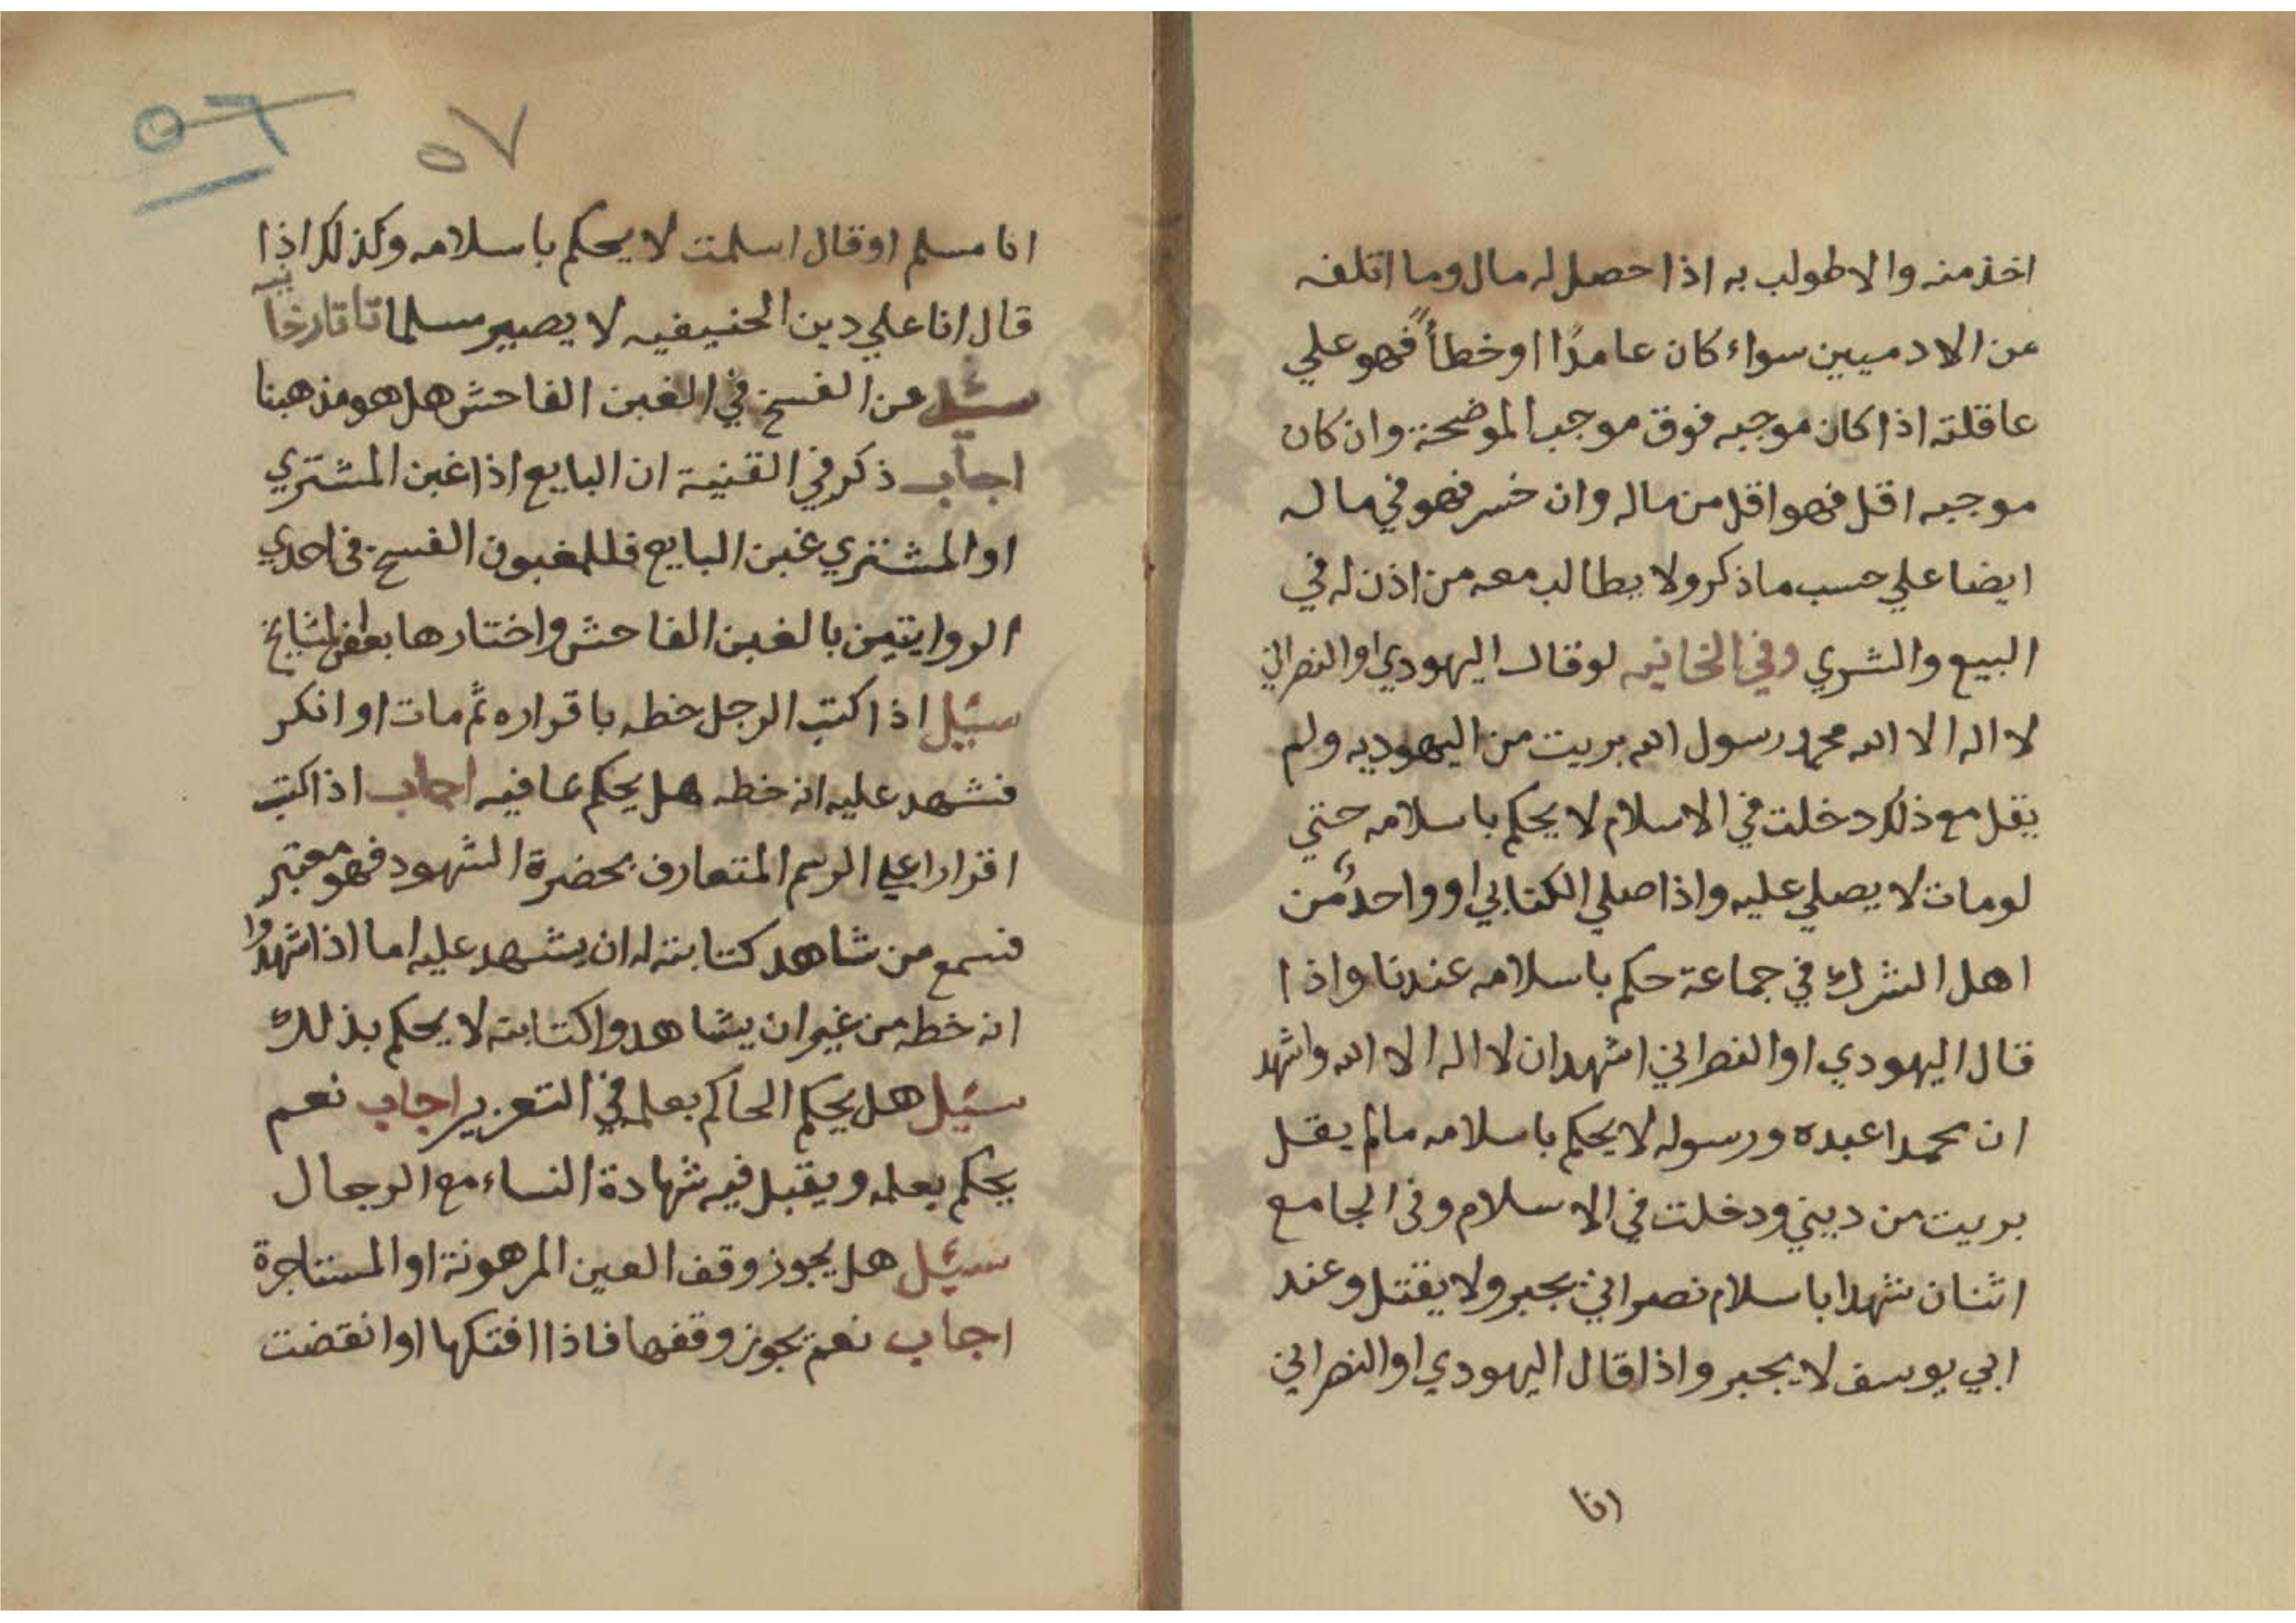 اخذ منه والا طولب به اذا حصل له مال وما اتلفه
من الادميين سواء كان عامدًا او خطأً فهو علي
عاقلته اذا كان موجبه فوق موجب الموضحة وان كان
موجبه اقل فهو اقل من ماله وان خسر فهو في ماله
ايضا علي حسب ما ذكر ولا يطالب معه من اذن له في
البيع والشري وفي الخانيه لو قال اليهودي او النصراني
لا اله الا الله محمد رسول الله بريت من اليهوديه ولم
يقل مع ذلك دخلت في الاسلام لا يحكم باسلامه حتي
لو مات لا يصلي عليه واذا صلي الكتابي او واحد من
اهل الشرك في جماعة حكم باسلامه عندنا واذا
قال اليهودي او النصراني اشهد ان لا اله الا الله واشهد
ان محمدا عبده ورسوله لا يحكم باسلامه مالم يقل
بريت من ديني ودخلت في الاسلام وفي الجامع
اثنان شهدا باسلام نصراني يجبر ولا يقتل وعند
ابي يوسف لا يجبر واذا قال اليهودي او النصراني
انا
٥٦
٥٧
انا مسلم او قال اسلمت لا يحكم باسلامه وكذلك اذا
قال انا علي دين الحنيفيه لا يصير مسلما تاتارخانيه
سئل عن الفسخ في الغبن الفاحش هل هو مذهبنا
اجاب ذكر في القنية ان البايع اذا غبن المشتري
او المشتري غبن البايع فللمغبون الفسخ في احدي
الروايتين بالغبن الفاحش واختارها بعض المشايخ
سئيل اذا كتب الرجل خطه باقراره ثم مات او انكر
فشهد عليه انه خطه هل يحكم بما فيه اجاب اذا كتب
اقرارا علي الرسم المتعارف بحضرة الشهود فهو معتبر
فسمع من شاهد كتابته له ان يشهد عليه اما اذا شهدوا
انه خطه من غير ان يشاهدوا كتابته لا يحكم بذلك
سئيل هل يحكم الحاكم بعلمه في التعزير اجاب نعم
يحكم بعلمه ويقبل فيه شهادة النساء مع الرجال
سئيل هل يجوز وقف العين المرهونة او المستاجرة
اجاب نعم يجوز وقفها فاذا افتكها او انقضت